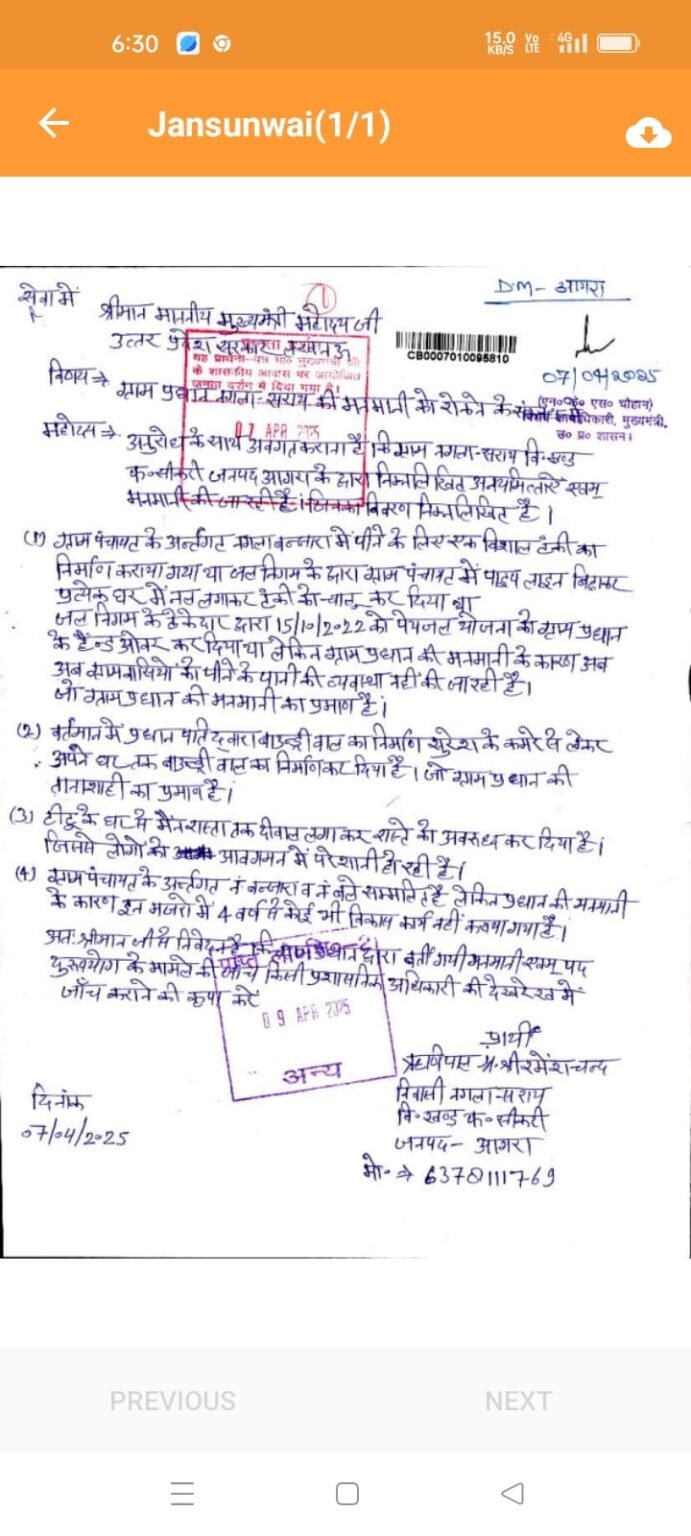 6:30
15.0 KB/S
Vo LTE
4G
Jansunwai(1/1)
सेवा में
DM - आगरा
श्रीमान माननीय मुख्यमंत्री महोदय जी
उत्तर प्रदेश सरकार लखनऊ
यह प्रार्थना-पत्र मा० मुख्यमंत्री जी
के शासकीय आवास पर आयोजित
जनता दर्शन में दिया गया है।
07 APR 2025
CB0007010095810
07/04/2025
(एन०के० एस० चौहान)
विशेष कार्याधिकारी, मुख्यमंत्री,
उ० प्र० शासन।
विषय → ग्राम प्रधान नगला-सराय की मनमानी को रोकने के संबन्ध में
महोदय → अनुरोध के साथ अवगत कराना है कि ग्राम नगला-सराय वि०खण्ड
फ०सीकरी जनपद आगरा के द्वारा निम्नलिखित अनयमित्तारें एवम्
मनमानी की जा रही है। जिनका विवरण निम्नलिखित है।
(1) ग्राम पंचायत के अर्न्तगत नगला बन्जारा में पीने के लिए एक विशाल टंकी का
निर्माण कराया गया था जल निगम के द्वारा ग्राम पंचायत में पाइप लाइन बिछाकर
प्रत्येक घर में नल लगाकर टंकी को चालू कर दिया था
जल निगम के ठेकेदार द्वारा 15/10/2022 को पेयजल योजना को ग्राम प्रधान
के हैन्ड ओवर कर दिया था लेकिन ग्राम प्रधान की मनमानी के कारण अब
अब ग्रामवासियों को पीने के पानी की व्यवस्था नहीं की जा रही है।
जो ग्राम प्रधान की मनमानी का प्रमाण है।
(2) वर्तमान में प्रधान पति द्वारा बाउन्ड्री वाल का निर्माण सुरेश के कमरे से लेकर
अपने घर तक बाउन्ड्री वाल का निर्माण कर दिया है। जो ग्राम प्रधान की
तानाशाही का प्रमाण है।
(3) टीटू के घर से मैन रास्ता तक दीवाल लगाकर रास्ते को अवरुध कर दिया है।
जिससे लोगों को आवागमन में परेशानी हो रही है।
(4) ग्राम पंचायत के अर्न्तगत नं बन्जारा व नं सम्मलित है लेकिन प्रधान की मनमानी
के कारण इन मजरो में 4 वर्ष से कोई भी विकास कार्य नहीं कराया गया है।
अतः श्रीमान जी से निवेदन है कि प्रधान द्वारा बर्ती गयी मनमानी एवम् पद
दुरुपयोग के मामले की जाँच किसी प्रशासनिक अधिकारी की देखरेख में
जाँच कराने की कृपा करें
प्राप्त
09 APR 2025
अन्य
प्रार्थी
ऋषिपाल श्री रमेशचन्द
निवासी नगला-सराय
वि०खण्ड फ० सीकरी
जनपद - आगरा
मो० → 6378111769
दिनांक
07/04/2025
PREVIOUS
NEXT